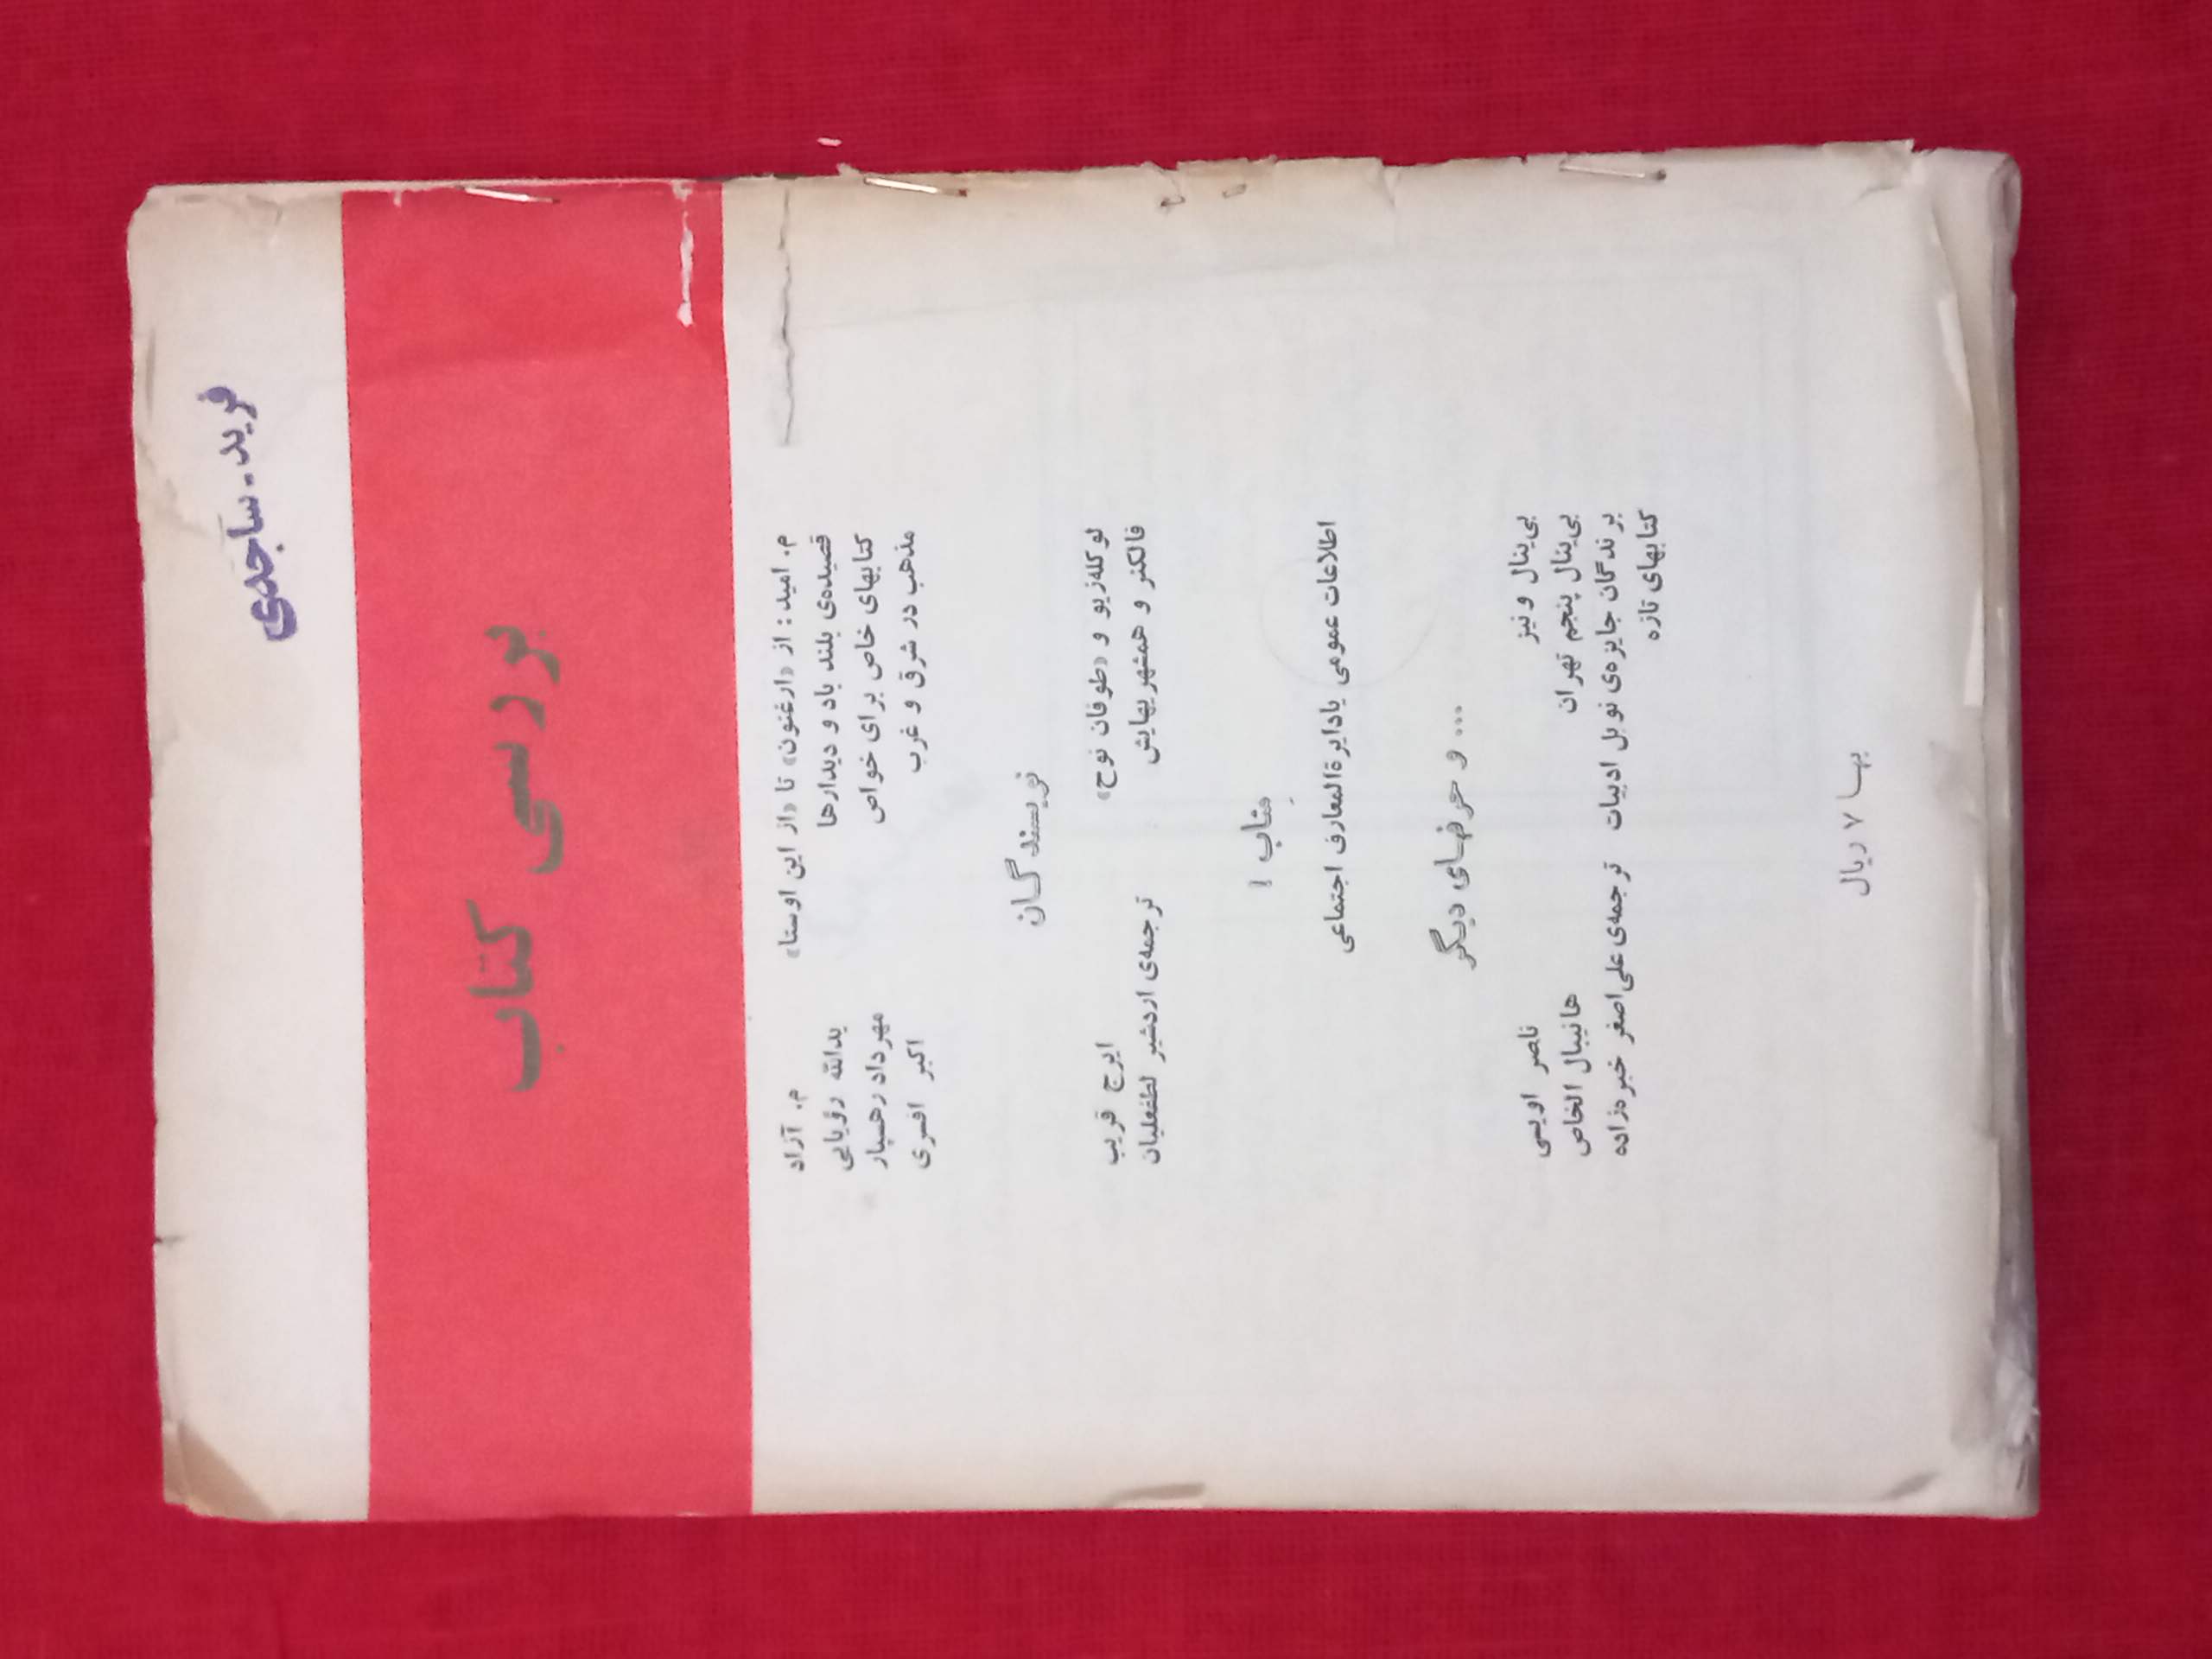 فرید-ساجدی
بررسی کتاب
م. امید: از «ارغنون» تا «از این اوستا» م. آزاد
قصیده‌ی بلند باد و دیدارها یدالله رؤیایی
کتابهای خاص برای خواص مهرداد رهسپار
مذهب در شرق و غرب اکبر افسری
نویسندگان
لوکله‌زیو و «طوفان نوح» ایرج قریب
فالکنر و همشهریهایش ترجمه‌ی اردشیر لطفعلیان
اطلاعات عمومی یا دایرةالمعارف اجتماعی
... و حرفهای دیگر
بی‌ینال ونیز ناصر اویسی
بی‌ینال پنجم تهران هانیبال الخاص
برندگان جایزه‌ی نوبل ادبیات ترجمه‌ی علی‌اصغر خبره‌زاده
کتابهای تازه
بها ۷ ریال